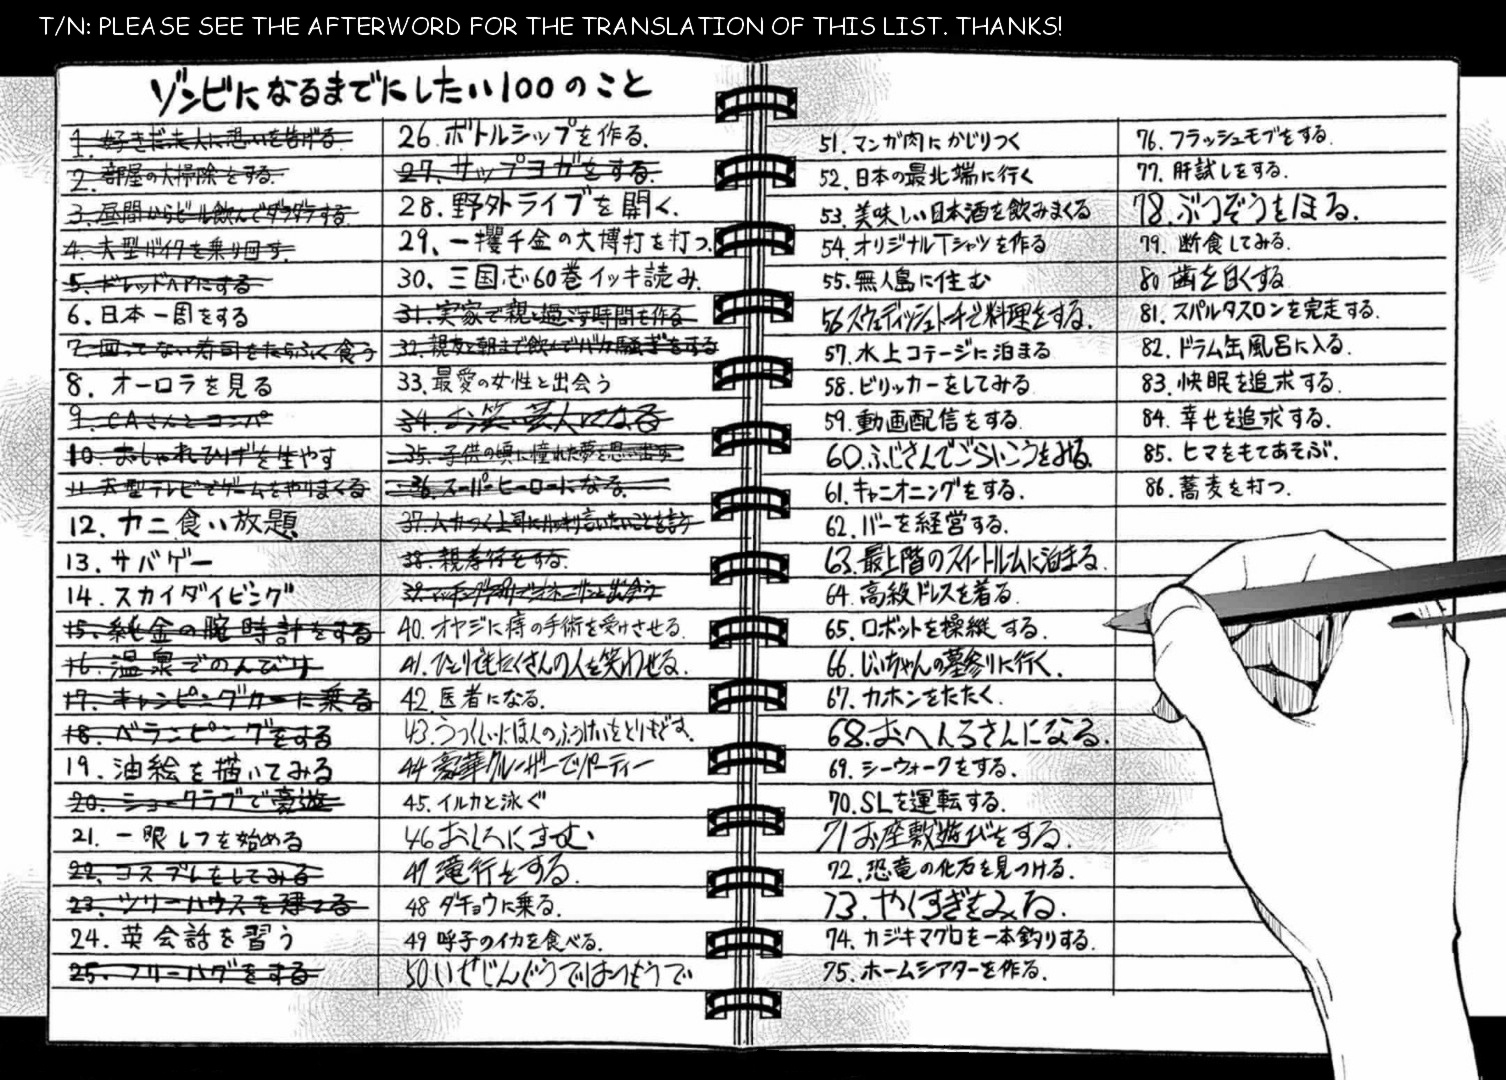 T/N: PLEASE SEE THE AFTERWORD FOR THE TRANSLATION OF THIS LIST. THANKS!
ゾンビになるまでにしたい100のこと
1. 好きだった人に思いを告げる
2. 部屋の大掃除をする.
3. 昼間からビール飲んでダラダラする
4. 大型バイクを乗り回す.
5. ドレッドヘアにする
6. 日本一周をする
7. 回ってない寿司をたらふく食う
8. オーロラを見る
9. CAさんとコンパ
10. おしゃれひげを生やす
11. 大型テレビでゲームをやりまくる
12. カニ食い放題
13. サバゲー
14. スカイダイビング
15. 純金の腕時計をする
16. 温泉でのんびり
17. キャンピングカーに乗る
18. ベランピングをする
19. 油絵を描いてみる
20. ショークラブで豪遊
21. 一眼レフを始める
22. コスプレをしてみる
23. ツリーハウスを建てる
24. 英会話を習う
25. フリーハグをする
26. ボトルシップを作る.
27. サップヨガをする.
28. 野外ライブを開く.
29、一攫千金の大博打を打つ.
30. 三国志60巻イッキ読み.
31. 実家で親と過ごす時間を作る
32. 親友と朝まで飲んでバカ騒ぎをする
33. 最愛の女性と出会う
34. お笑い芸人になる
35. 子供の頃に憧れた夢を思い出す
36. スーパーヒーローになる.
37. ムカつく上司にハッキリ言いたいことを言う
38. 親孝行をする.
39. マッチングアプリで
40. オヤジに痔の手術を受けさせる.
41. ひとりでもたくさんの人を笑わせる.
42. 医者になる.
43. うつくしいにほんのふうけいをとりもどす.
44 豪華クルーザーでパーティー
45. イルカと泳ぐ
46 おしろにすむ
47 滝行をする.
48 ダチョウに乗る.
49 呼子のイカを食べる.
50 いせじんぐうではつもうで
51. マンガ肉にかじりつく
52. 日本の最北端に行く
53. 美味しい日本酒を飲みまくる
54. オリジナルTシャツを作る
55. 無人島に住む
56 スウェディッシュトーチで料理をする.
57. 水上コテージに泊まる
58. ビリッカーをしてみる
59. 動画配信をする.
60. ふじさんでごらいこうをみる.
61. キャニオニングをする.
62. バーを経営する.
63. 最上階のスイートルームに泊まる.
64. 高級ドレスを着る.
65. ロボットを操縦する.
66. じいちゃんの墓参りに行く.
67. カホンをたたく.
68. おへんろさんになる.
69. シーウォークをする.
70. SLを運転する.
71 お座敷遊びをする.
72. 恐竜の化石を見つける.
73. やくすぎをみる.
74. カジキマグロを一本釣りする.
75. ホームシアターを作る.
76. フラッシュモブをする.
77. 肝試しをする.
78. ぶつぞうをほる.
79. 断食してみる.
80 歯を白くする
81. スパルタスロンを完走する.
82. ドラム缶風呂に入る.
83. 快眠を追求する.
84. 幸せを追求する.
85. ヒマをもてあそぶ.
86. 蕎麦を打つ.